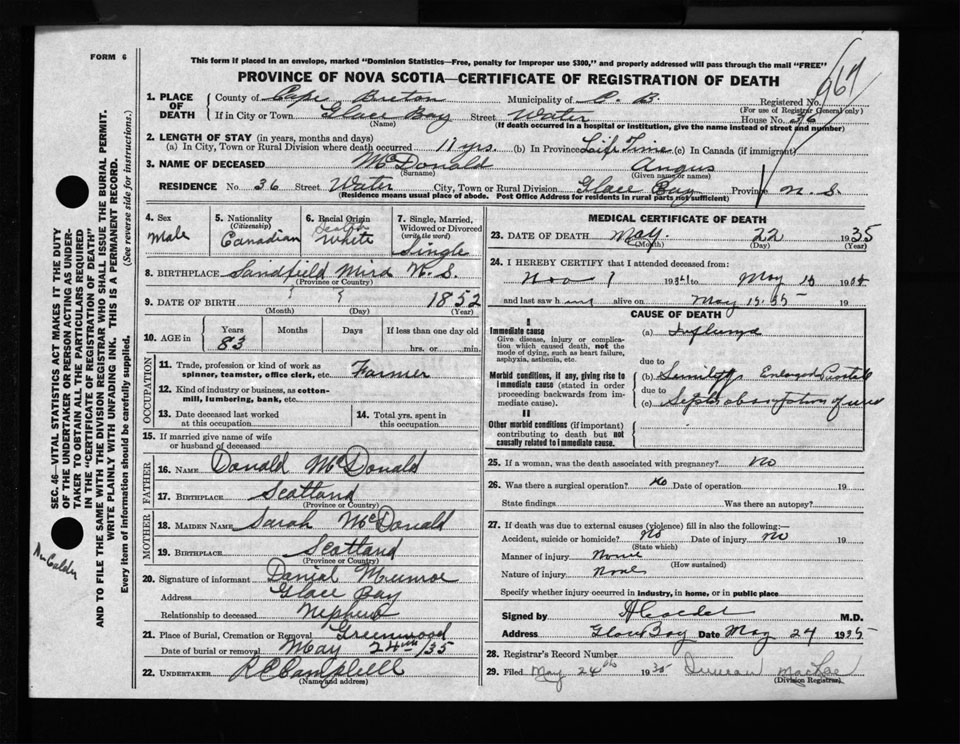 FORM 6
This form if placed in an envelope, marked "Dominion Statistics—Free, penalty for improper use $300," and properly addressed will pass through the mail "FREE"
PROVINCE OF NOVA SCOTIA—CERTIFICATE OF REGISTRATION OF DEATH
967
1. PLACE OF DEATH
County of Cape Breton Municipality of C. B. Registered No.
(For use of Registrar General only)
If in City or Town Glace Bay Street Water House No. 36
(Name) (If death occurred in a hospital or institution, give the name instead of street and number)
2. LENGTH OF STAY (in years, months and days)
(a) In City, Town or Rural Division where death occurred 11 yrs. (b) In Province Life Time (c) In Canada (if immigrant)
3. NAME OF DECEASED McDonald Angus
(Surname) (Given name or names)
RESIDENCE No 36 Street Water City, Town or Rural Division Glace Bay Province N. S.
(Residence means usual place of abode. Post Office Address for residents in rural parts not sufficient)
4. Sex Male
5. Nationality (Citizenship) Canadian
6. Racial Origin Scotch White
7. Single, Married, Widowed or Divorced (write the word) Single
8. BIRTHPLACE Sandfield Mira N. S.
(Province or Country)
9. DATE OF BIRTH ? ? 1852
(Month) (Day) (Year)
10. AGE in Years Months Days If less than one day old
83 hrs. or min.
OCCUPATION
11. Trade, profession or kind of work as spinner, teamster, office clerk, etc. Farmer
12. Kind of industry or business, as cotton-mill, lumbering, bank, etc.
13. Date deceased last worked at this occupation
14. Total yrs. spent in this occupation
15. If married give name of wife or husband of deceased
FATHER
16. NAME Donald McDonald
17. BIRTHPLACE Scotland
(Province or Country)
MOTHER
18. MAIDEN NAME Sarah McDonald
19. BIRTHPLACE Scotland
(Province or Country)
20. Signature of informant Danial Munroe
Address Glace Bay
Relationship to deceased Nephew
21. Place of Burial, Cremation or Removal Greenwood
Date of burial or removal May 24th/35
22. UNDERTAKER R C Campbell
(Name and address)
MEDICAL CERTIFICATE OF DEATH
23. DATE OF DEATH May 22 1935
(Month) (Day) (Year)
24. I HEREBY CERTIFY that I attended deceased from:
Nov 1 19 to May 19
and last saw h im alive on May 15. 35 19
CAUSE OF DEATH
I
Immediate cause
Give disease, injury or complication which caused death, not the mode of dying, such as heart failure, asphyxia, asthenia, etc.
(a)
due to
Morbid conditions, if any, giving rise to immediate cause (stated in order proceeding backwards from immediate cause).
(b) Senility Enlarged
due to
(c) Septic absorption of
II
Other morbid conditions (if important) contributing to death but not causally related to immediate cause.
25. If a woman, was the death associated with pregnancy? No
26. Was there a surgical operation? No Date of operation 19
State findings Was there an autopsy?
27. If death was due to external causes (violence) fill in also the following:
Accident, suicide or homicide? No Date of injury No 19
(State which)
Manner of injury None
(How sustained)
Nature of injury None
Specify whether injury occurred in industry, in home, or in public place
Signed by M.D.
Address Glace Bay Date May 24 1935
28. Registrar's Record Number
29. Filed May 24th 1935 Duncan MacRae
(Division Registrar)
SEC. 46—VITAL STATISTICS ACT MAKES IT THE DUTY
OF THE UNDERTAKER OR PERSON ACTING AS UNDER-
TAKER TO OBTAIN ALL THE PARTICULARS REQUIRED
IN THE "CERTIFICATE OF REGISTRATION OF DEATH"
AND TO FILE THE SAME WITH THE DIVISION REGISTRAR WHO SHALL ISSUE THE BURIAL PERMIT.
WRITE PLAINLY WITH UNFADING INK. THIS IS A PERMANENT RECORD.
Every item of information should be carefully supplied. (See reverse side for instructions.)